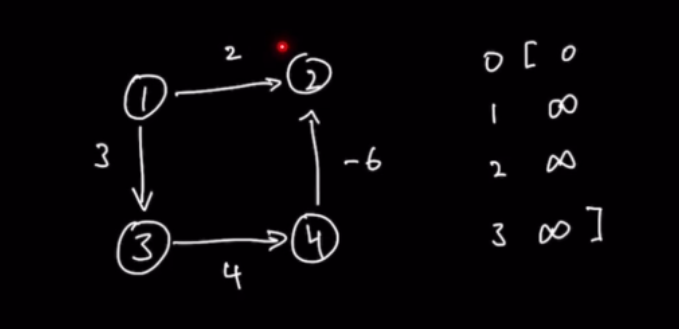 2
1 2
3 -6
3 4
4
0 [ 0
1 ∞
2 ∞
3 ∞ ]